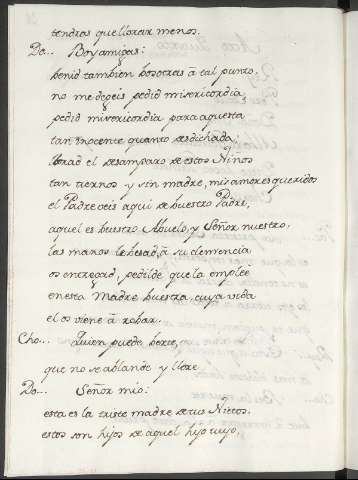 tendras que llorar menos.
Do... Boy amigas:
benid tambien bosotras â tal punto.
no me degeis pedid misericordia,
pedid misericordia para aquesta
tan inocente quanto desdichada;
llorad el desamparo de estos Niños
tan tiernos y sin madre, mis amores queridos
el Padre veis aqui de buestro Padre,
aquel es buestro Abuelo, y Señor nuestro.
las manos le besad, â su clemencia
os entregad, pedidle que la emplèe
en esta Madre buestra, cuya vida
el os viene â robar.
Cho... Quien puede berte,
que no se ablande y llore
Do... Señor mio:
esta es la triste madre de tus Nietos.
estos son hijos de aquel hijo tuyo,